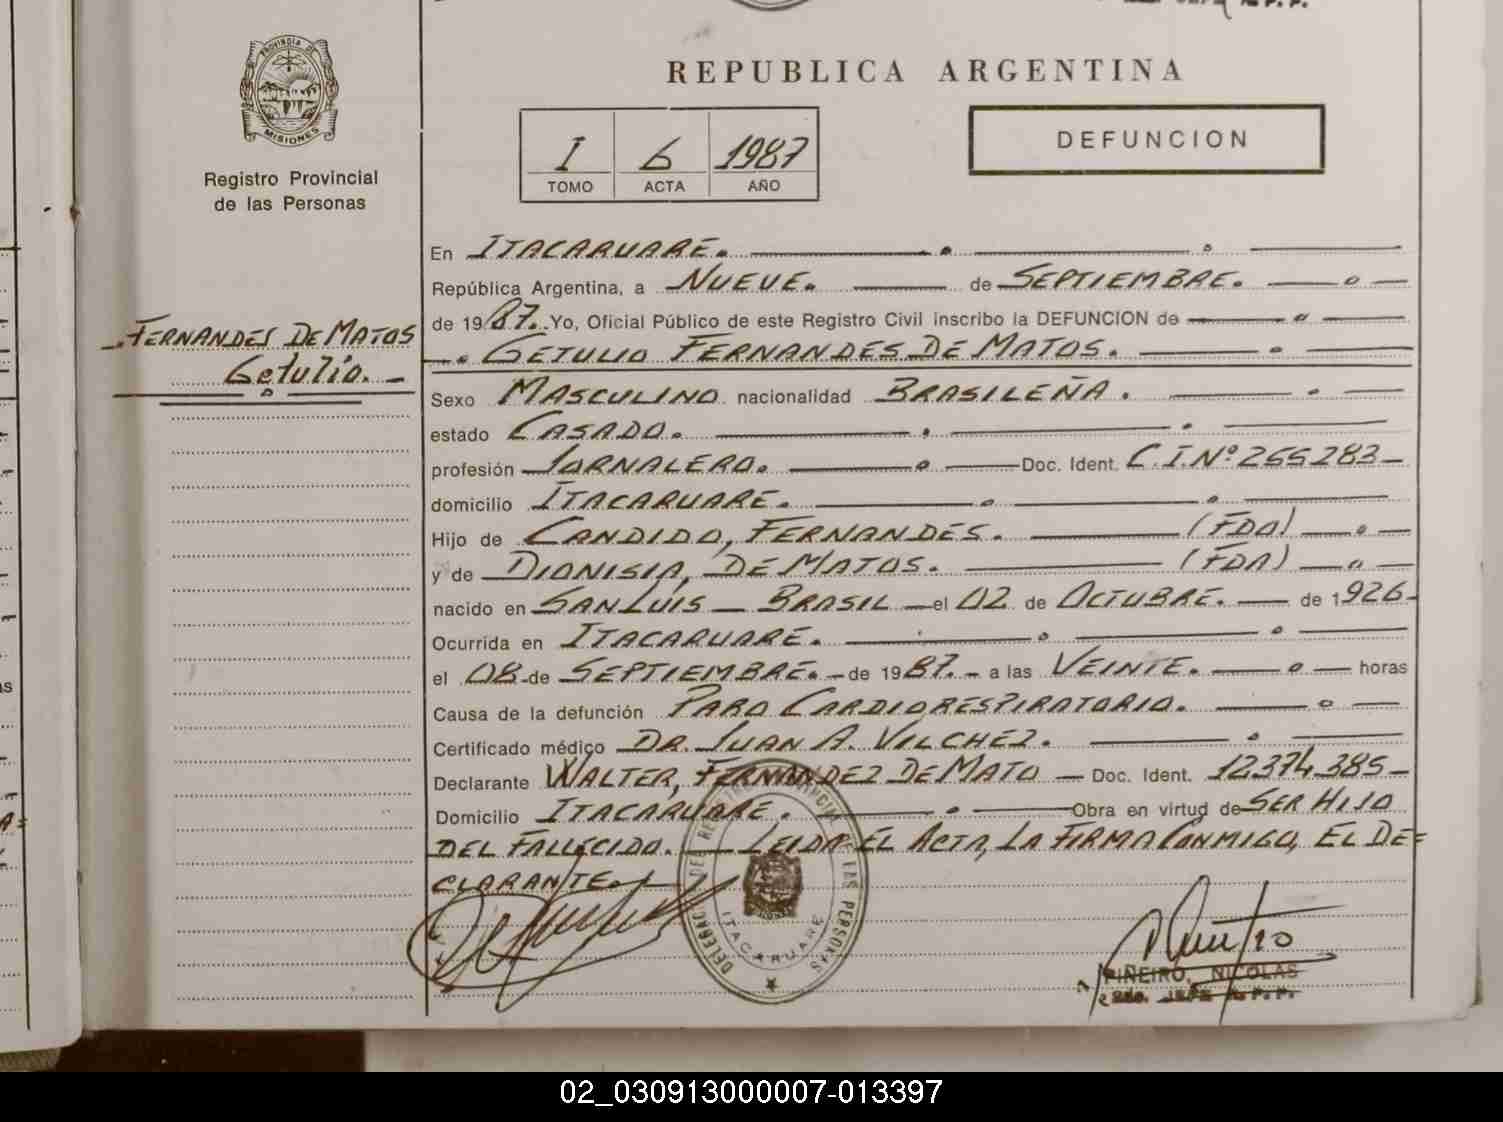 PROVINCIA DE
MISIONES
Registro Provincial
de las Personas
FERNANDES DE MATOS
Getulio.
REPUBLICA ARGENTINA
I 6 1987
TOMO ACTA AÑO
DEFUNCION
En ITACARUARE.
República Argentina, a NUEVE. de SEPTIEMBRE.
de 1987. Yo, Oficial Público de este Registro Civil inscribo la DEFUNCION de
GETULIO FERNANDES DE MATOS.
Sexo MASCULINO nacionalidad BRASILEÑA.
estado CASADO.
profesión JORNALERO. Doc. Ident. C.I.Nº265283
domicilio ITACARUARE.
Hijo de CANDIDO, FERNANDES. (FDO)
y de DIONISIA, DE MATOS. (FDA)
nacido en SAN LUIS - BRASIL el 02 de OCTUBRE. de 1926
Ocurrida en ITACARUARE.
el 08 de SEPTIEMBRE. de 1987. a las VEINTE. horas
Causa de la defunción PARO CARDIORESPIRATORIO.
Certificado médico DR. JUAN A. VILCHEZ.
Declarante WALTER, FERNANDEZ DE MATO - Doc. Ident. 12374385
Domicilio ITACARUARE. Obra en virtud de SER HIJO
DEL FALLECIDO. LEIDA EL ACTA, LA FIRMA CONMIGO, EL DE=
CLARANTE.
DEL REGISTRO PROVINCIAL DE LAS PERSONAS
ITACARUARE
PIÑEIRO, NICOLAS
02_030913000007-013397